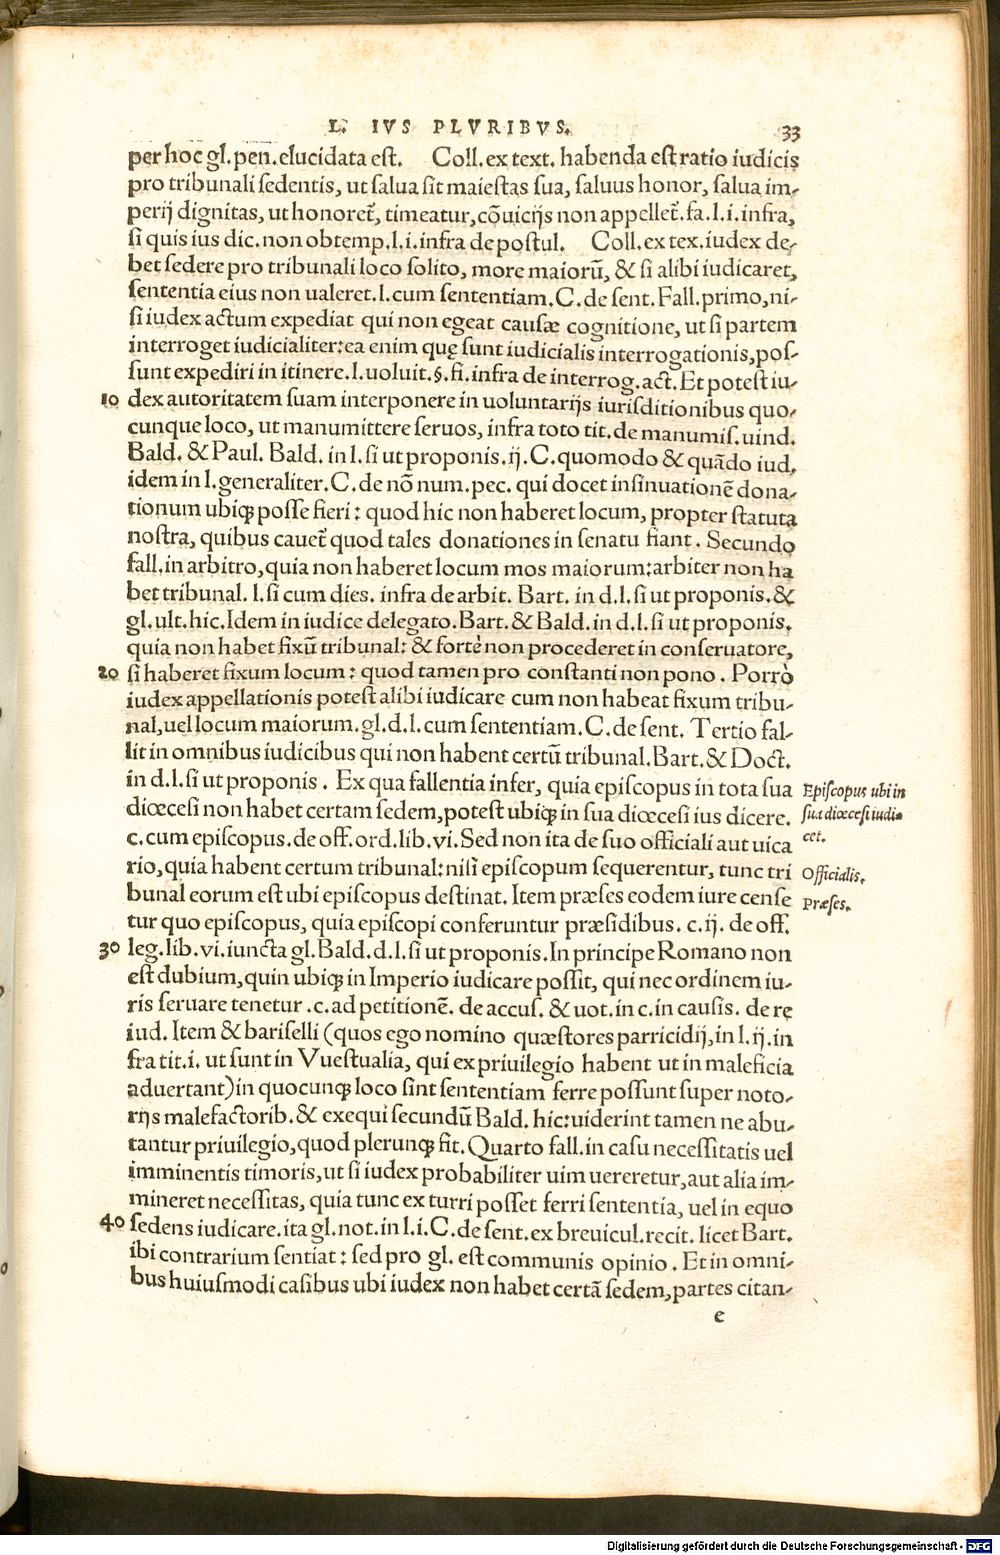 L. IVS PLVRIBVS. 33
per hoc gl. pen. elucidata est. Coll. ex text. habenda est ratio iudicis
pro tribunali sedentis, ut salua sit maiestas sua, saluus honor, salua im-
perij dignitas, ut honoret᷑, timeatur, cõuicijs non appellet᷑. fa. l. i. infra,
si quis ius dic. non obtemp. l. i. infra de postul. Coll. ex tex. iudex de-
bet sedere pro tribunali loco solito, more maiorũ, & si alibi iudicaret,
sententia eius non ualeret. l. cum sententiam. C. de sent. Fall. primo, ni-
si iudex actum expediat qui non egeat causæ cognitione, ut si partem
interroget iudicialiter: ea enim quę sunt iudicialis interrogationis, pos-
sunt expediri in itinere. l. uoluit. §. fi. infra de interrog. act. Et potest iu-
10 dex autoritatem suam interponere in uoluntarijs iurisditionibus quo-
cunque loco, ut manumittere seruos, infra toto tit. de manumis. uind.
Bald. & Paul. Bald. in l. si ut proponis. ij. C. quomodo & quãdo iud.
idem in l. generaliter. C. de nõ num. pec. qui docet insinuationẽ dona-
tionum ubiqꝫ posse fieri: quod hic non haberet locum, propter statuta
nostra, quibus cauet᷑ quod tales donationes in senatu fiant. Secundo
fall. in arbitro, quia non haberet locum mos maiorum: arbiter non ha
bet tribunal. l. si cum dies. infra de arbit. Bart. in d. l. si ut proponis. &
gl. ult. hic. Idem in iudice delegato. Bart. & Bald. in d. l. si ut proponis.
quia non habet fixũ tribunal: & fortè non procederet in conseruatore,
20 si haberet fixum locum: quod tamen pro constanti non pono. Porrò
iudex appellationis potest alibi iudicare cum non habeat fixum tribu-
nal, uel locum maiorum. gl. d. l. cum sententiam. C. de sent. Tertio fal-
lit in omnibus iudicibus qui non habent certũ tribunal. Bart. & Doct.
in d. l. si ut proponis. Ex qua fallentia infer, quia episcopus in tota sua
diœcesi non habet certam sedem, potest ubiqꝫ in sua diœcesi ius dicere.
c. cum episcopus. de off. ord. lib. vi. Sed non ita de suo officiali aut uica
rio, quia habent certum tribunal: nisi episcopum sequerentur, tunc tri
bunal eorum est ubi episcopus destinat. Item præses eodem iure cense
tur quo episcopus, quia episcopi conferuntur præsidibus. c. ij. de off.
30 leg. lib. vi. iuncta gl. Bald. d. l. si ut proponis. In principe Romano non
est dubium, quin ubiqꝫ in Imperio iudicare possit, qui nec ordinem iu-
ris seruare tenetur. c. ad petitionẽ. de accus. & uot. in c. in causis. de re
iud. Item & bariselli (quos ego nomino quæstores parricidij, in l. ij. in
fra tit. i. ut sunt in Vuestualia, qui ex priuilegio habent ut in maleficia
aduertant) in quocunqꝫ loco sint sententiam ferre possunt super noto-
rijs malefactorib. & exequi secundũ Bald. hic: uiderint tamen ne abu-
tantur priuilegio, quod plerunqꝫ fit. Quarto fall. in casu necessitatis uel
imminentis timoris, ut si iudex probabiliter uim uereretur, aut alia im-
mineret necessitas, quia tunc ex turri posset ferri sententia, uel in equo
40 sedens iudicare. ita gl. not. in l. i. C. de sent. ex breuicul. recit. licet Bart.
ibi contrarium sentiat: sed pro gl. est communis opinio. Et in omni-
bus huiusmodi casibus ubi iudex non habet certã sedem, partes citan-
e
Episcopus ubi in
sua diœcesi iudi-
cet.
Officialis.
Præses.
Digitalisierung gefördert durch die Deutsche Forschungsgemeinschaft - DFG